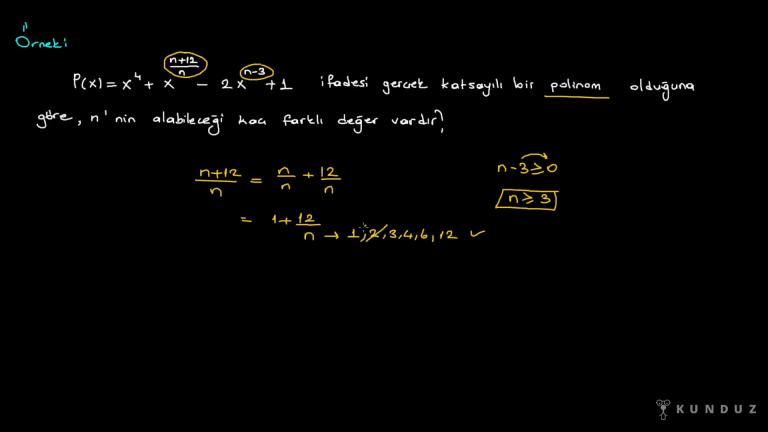 Örnek:
P(x) = x⁴ + x^((n+12)/n) − 2x^(n−3) + 1 ifadesi gerçek katsayılı bir polinom olduğuna
göre, n'nin alabileceği kaç farklı değer vardır?
(n+12)/n = n/n + 12/n
n−3 ≥ 0
n ≥ 3
= 1 + 12/n → 1, 2, 3, 4, 6, 12 ✓
KUNDUZ